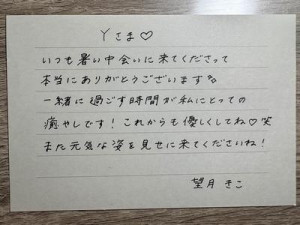 Yさま♡
いつも暑い中会いに来てくださって
本当にありがとうございます。
一緒に過ごす時間が私にとっての
癒やしです！これからも優しくしてね♡笑
また元気な姿を見せに来てくださいね！
望月 きこ